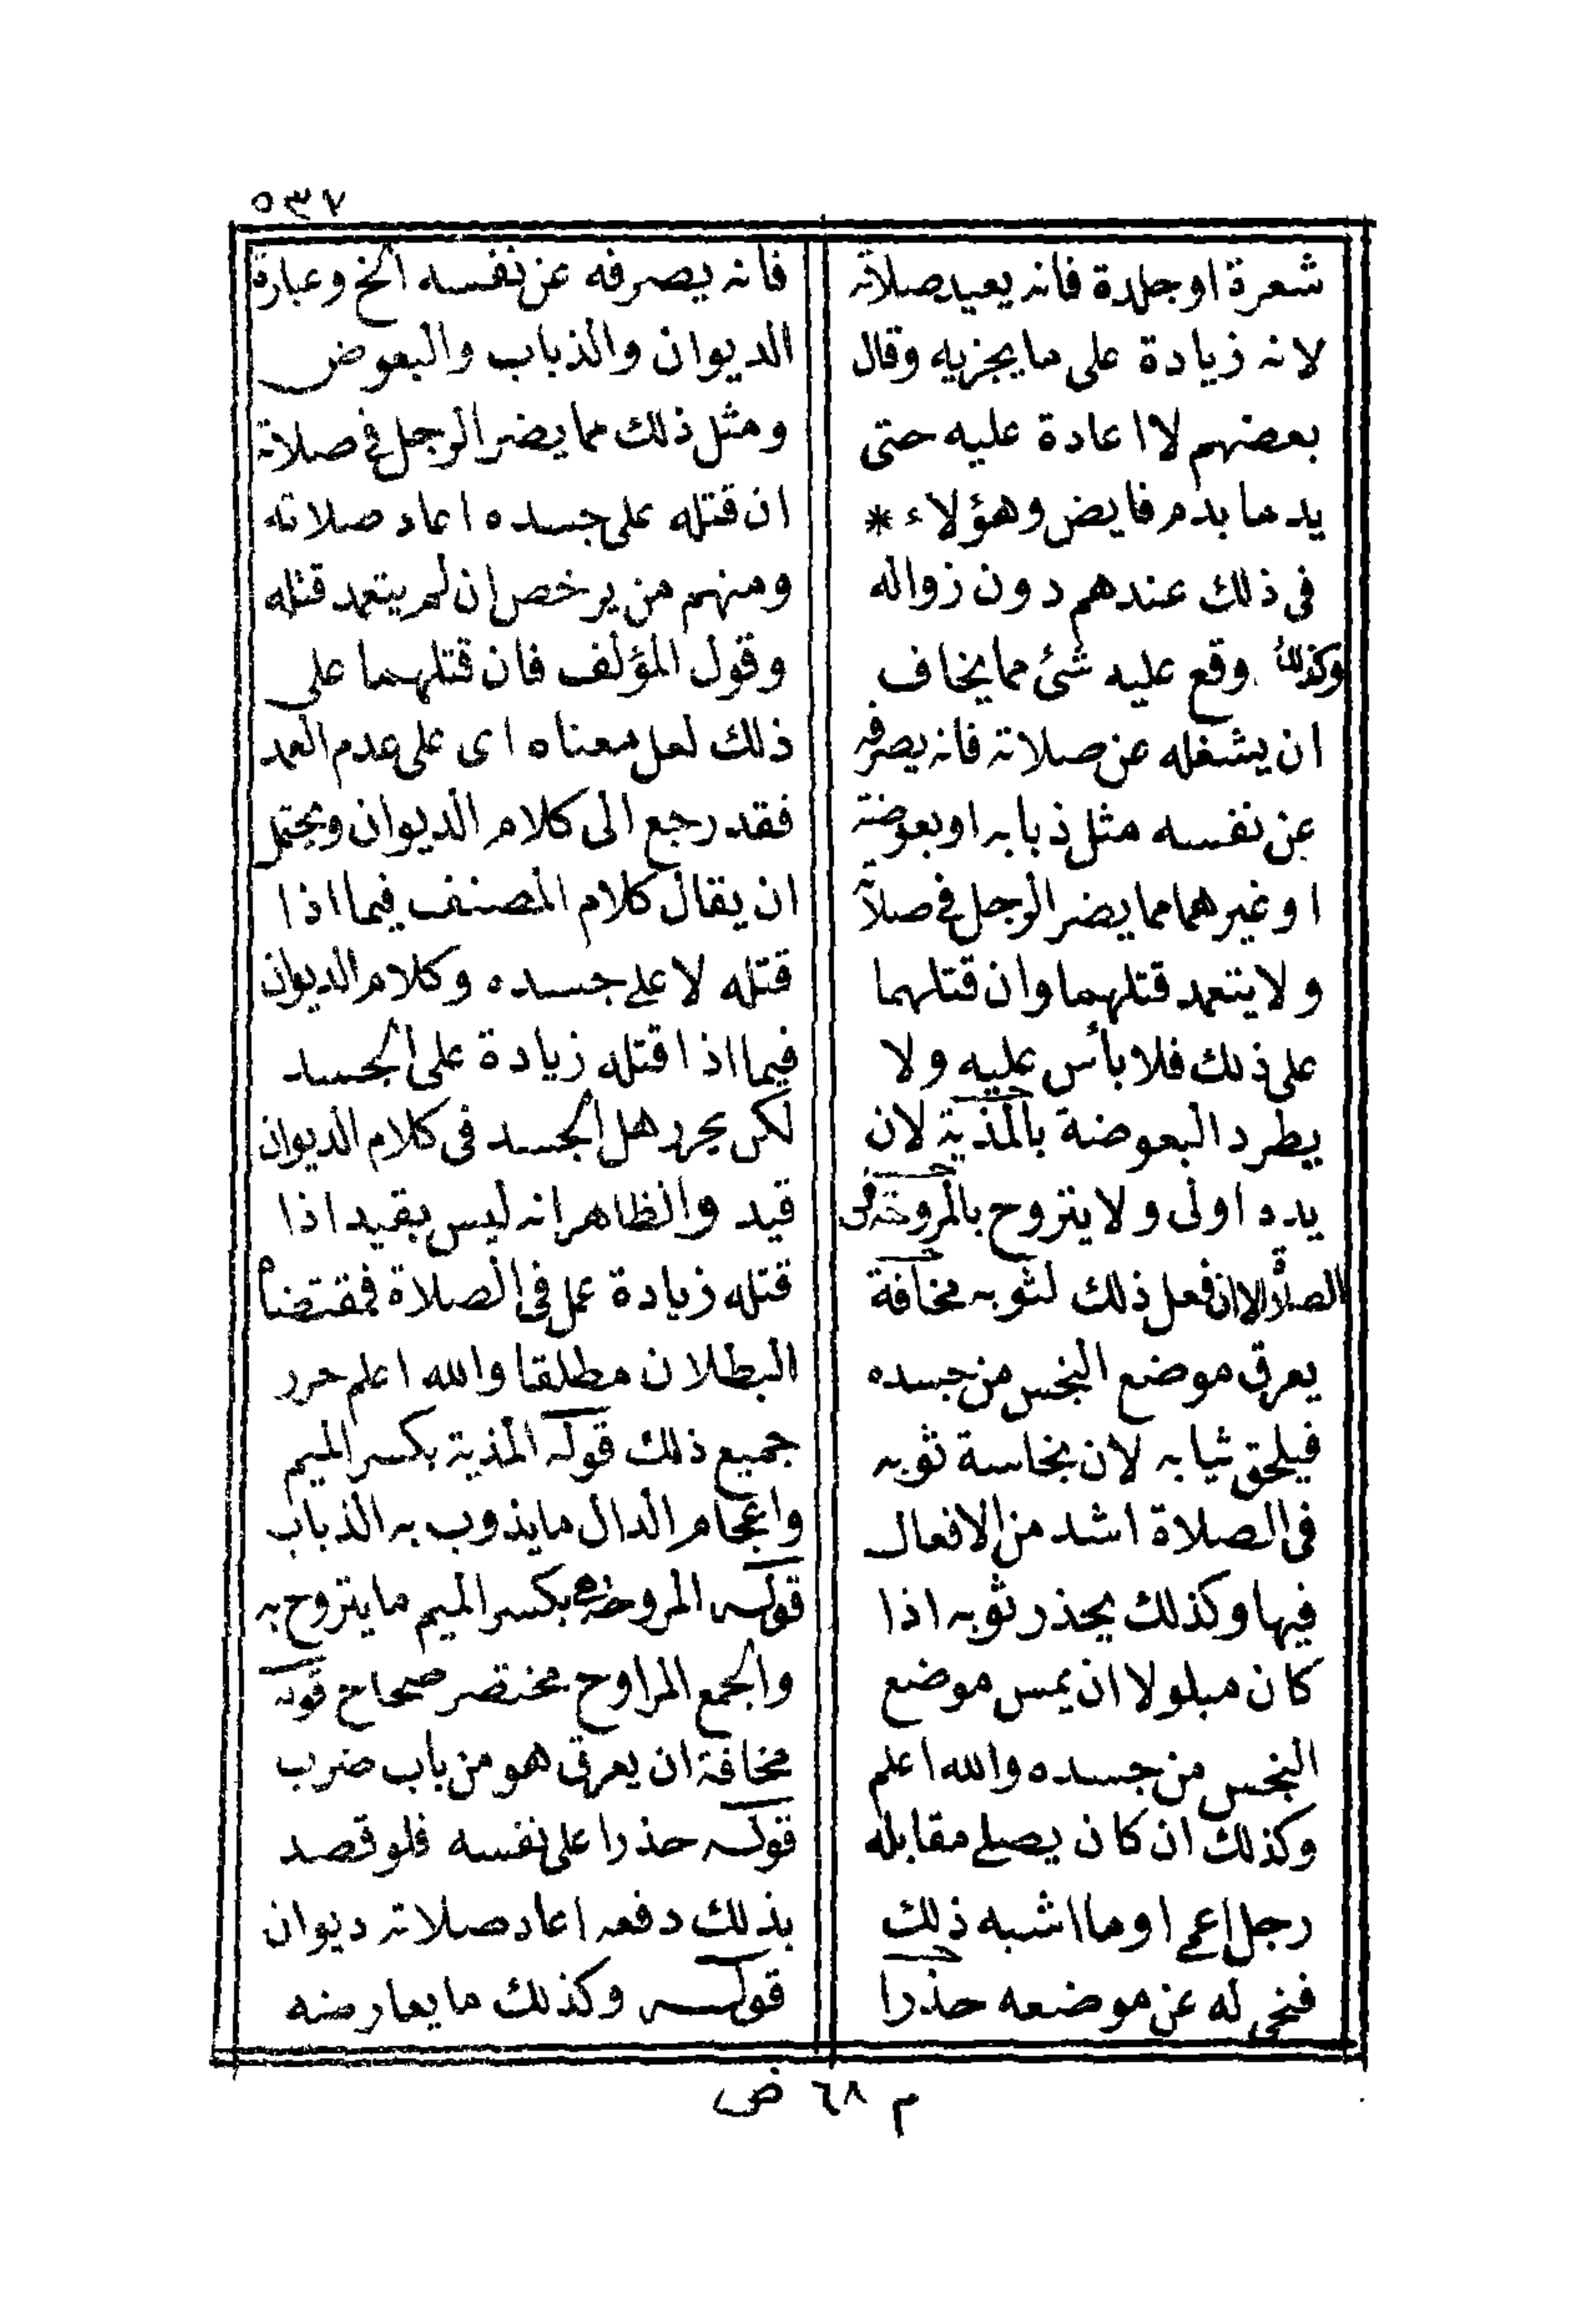 ٥٣٧
شعرة او جلدة فانه يعيد صلاته
لانه زيادة على ما يجزيه وقال
بعضهم لا اعادة عليه حتى
يدما بدم فايض وهؤلاء *
فى ذلك عندهم دون زواله
وكذلك وقع عليه شئ مما يخاف
ان يشغله عن صلاته فانه يصرفه
عن نفسه مثل ذبابه او بعوضة
او غيرهما مما يضر الرجل فى صلاته
ولا يتعمد قتلهما وان قتلهما
على ذلك فلا بأس عليه ولا
يطرد البعوضة بالمذبة لان
يده اولى ولا يتروح بالمروحة فى
الصلاة الا ان فعل ذلك لثوبه مخافة
يعرق موضع النجس من جسده
فيلحق ثيابه لان نجاسة ثوبه
فى الصلاة اشد من الافعال
فيها وكذلك يحذر ثوبه اذا
كان مبلولا ان يمس موضع
النجس من جسده والله اعلم
وكذلك ان كان يصلى مقابله
رجل اعمى او ما اشبه ذلك
فنحى له عن موضعه حذرا
فانه يصرفه عن نفسه الخ وعبارة
الديوان والذباب والبعوض
ومثل ذلك مما يضر الرجل فى صلاته
ان قتله على جسده اعاد صلاته
ومنهم من يرخص ان لم يتعمد قتله
وقول المؤلف فان قتلهما على
ذلك لعل معناه اى على عدم العمد
فقد رجع الى كلام الديوان ويحتمل
ان يقال كلام المصنف فيما اذا
قتله لا على جسده وكلام الديوان
فيما اذا قتله زيادة على الجسد
لكن يحرر هل الجسد فى كلام الديوان
قيد والظاهر انه ليس بقيد اذا
قتله زيادة عمل فى الصلاة فمقتضاه
البطلان مطلقا والله اعلم حرر
جميع ذلك قوله المذبة بكسر الميم
واعجام الدال ما يذوب به الذباب
قوله المروحة بكسر الميم ما يتروح به
والجمع المراوح مختصر صحاح قوله
مخافة ان يعرق هو من باب ضرب
قوله حذرا على نفسه فلو قصد
بذلك دفعه اعاد صلاته ديوان
قوله وكذلك ما يعارضه
م ٦٨ ض